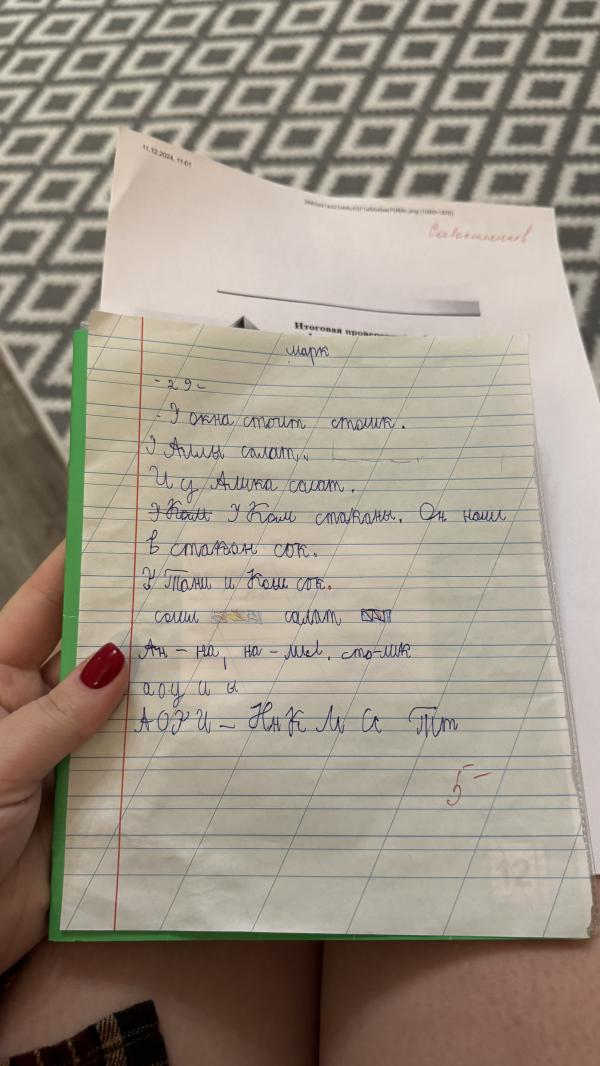 11.12.2024, 11:01
Итоговая провер
марк
- 29 -
- У окна стоит столик.
У Аллы салат.
И у Алика салат.
У Коли У Коли стаканы. Он налил
в стакан сок.
У Тани и Коли сок.
салат
Ан - на, на - лил, сто-лик
а о у и ы
А О У И - Нн К Л Сс Тт
5-
12